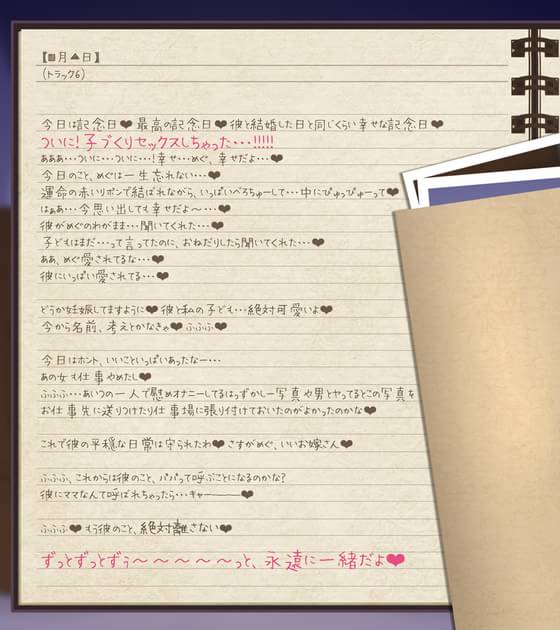 【■月▲日】
(トラック6)
今日は記念日❤最高の記念日❤彼と結婚した日と同じくらい幸せな記念日❤
ついに!子づくりセックスしちゃった…!!!!!
あああ…ついに…ついに…!幸せ…めぐ、幸せだよ…❤
今日のこと、めぐは一生忘れない…❤
運命の赤いリボンで結ばれながら、いっぱいべろちゅーして…中にぴゅっぴゅーって❤
はぁあ…今思い出しても幸せだよ~…❤
彼がめぐのわがまま…聞いてくれた…❤
子どもはまだ…って言ってたのに、おねだりしたら聞いてくれた…❤
ああ、めぐ愛されてるな…❤
彼にいっぱい愛されてる…❤
どうか妊娠してますように❤彼と私の子ども…絶対可愛いよ❤
今から名前、考えとかなきゃ❤ふふふ❤
今日はホント、いいこといっぱいあったなー…
あの女も仕事やめたし❤
ふふふ…あいつの一人で慰めオナニーしてるはっずかしー写真や男とヤってるとこの写真を
お仕事先に送りつけたり仕事場に張り付けておいたのがよかったのかな❤
これで彼の平穏な日常は守られたわ❤さすがめぐ、いいお嫁さん❤
ふふふ、これからは彼のこと、パパって呼ぶことになるのかな?
彼にママなんて呼ばれちゃったら…キャー――❤
ふふふ❤もう彼のこと、絶対離さない❤
ずっとずっとずぅ~~~~~っと、永遠に一緒だよ❤